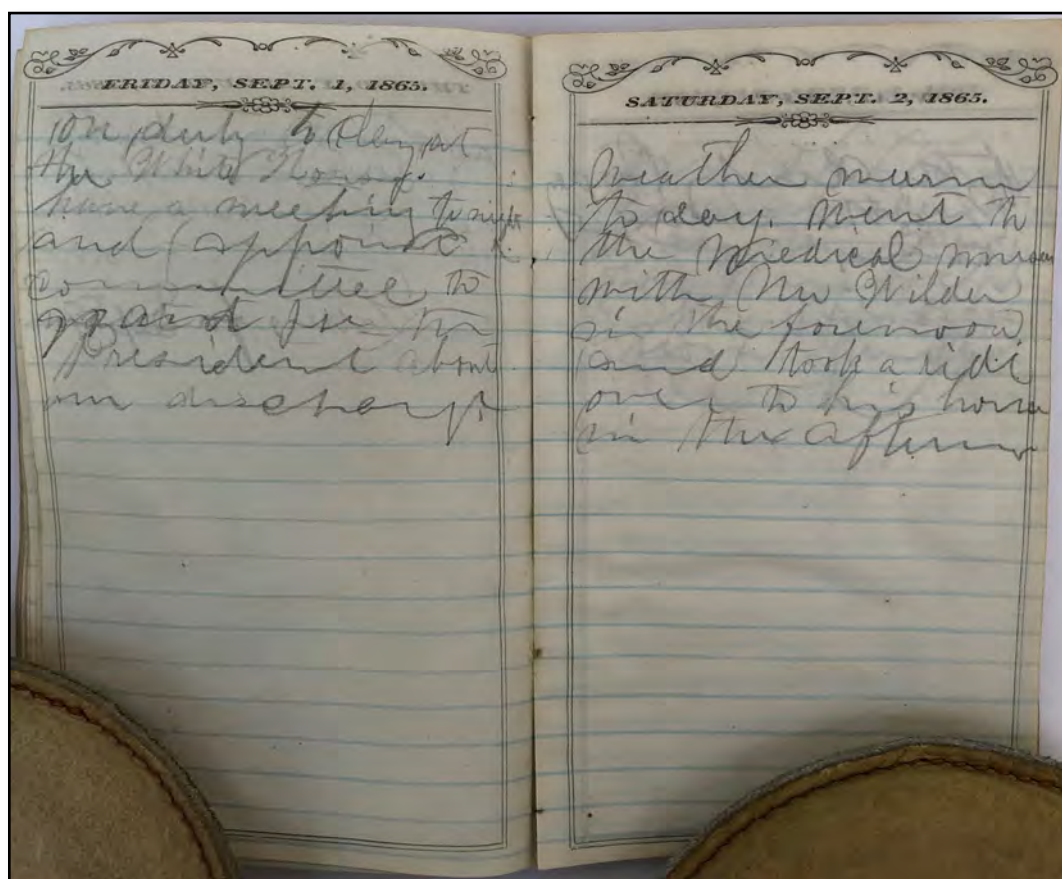 FRIDAY, SEPT. 1, 1865.
on duty to day at
the White House.
have a meeting to night
and appoint a
committee to
for the
President about
our discharge
SATURDAY, SEPT. 2, 1865.
Weather warm
to day. Went to
the Medical museum
with Mr Wilder
in the forenoon
and took a ride
over to his home
in the afternoon